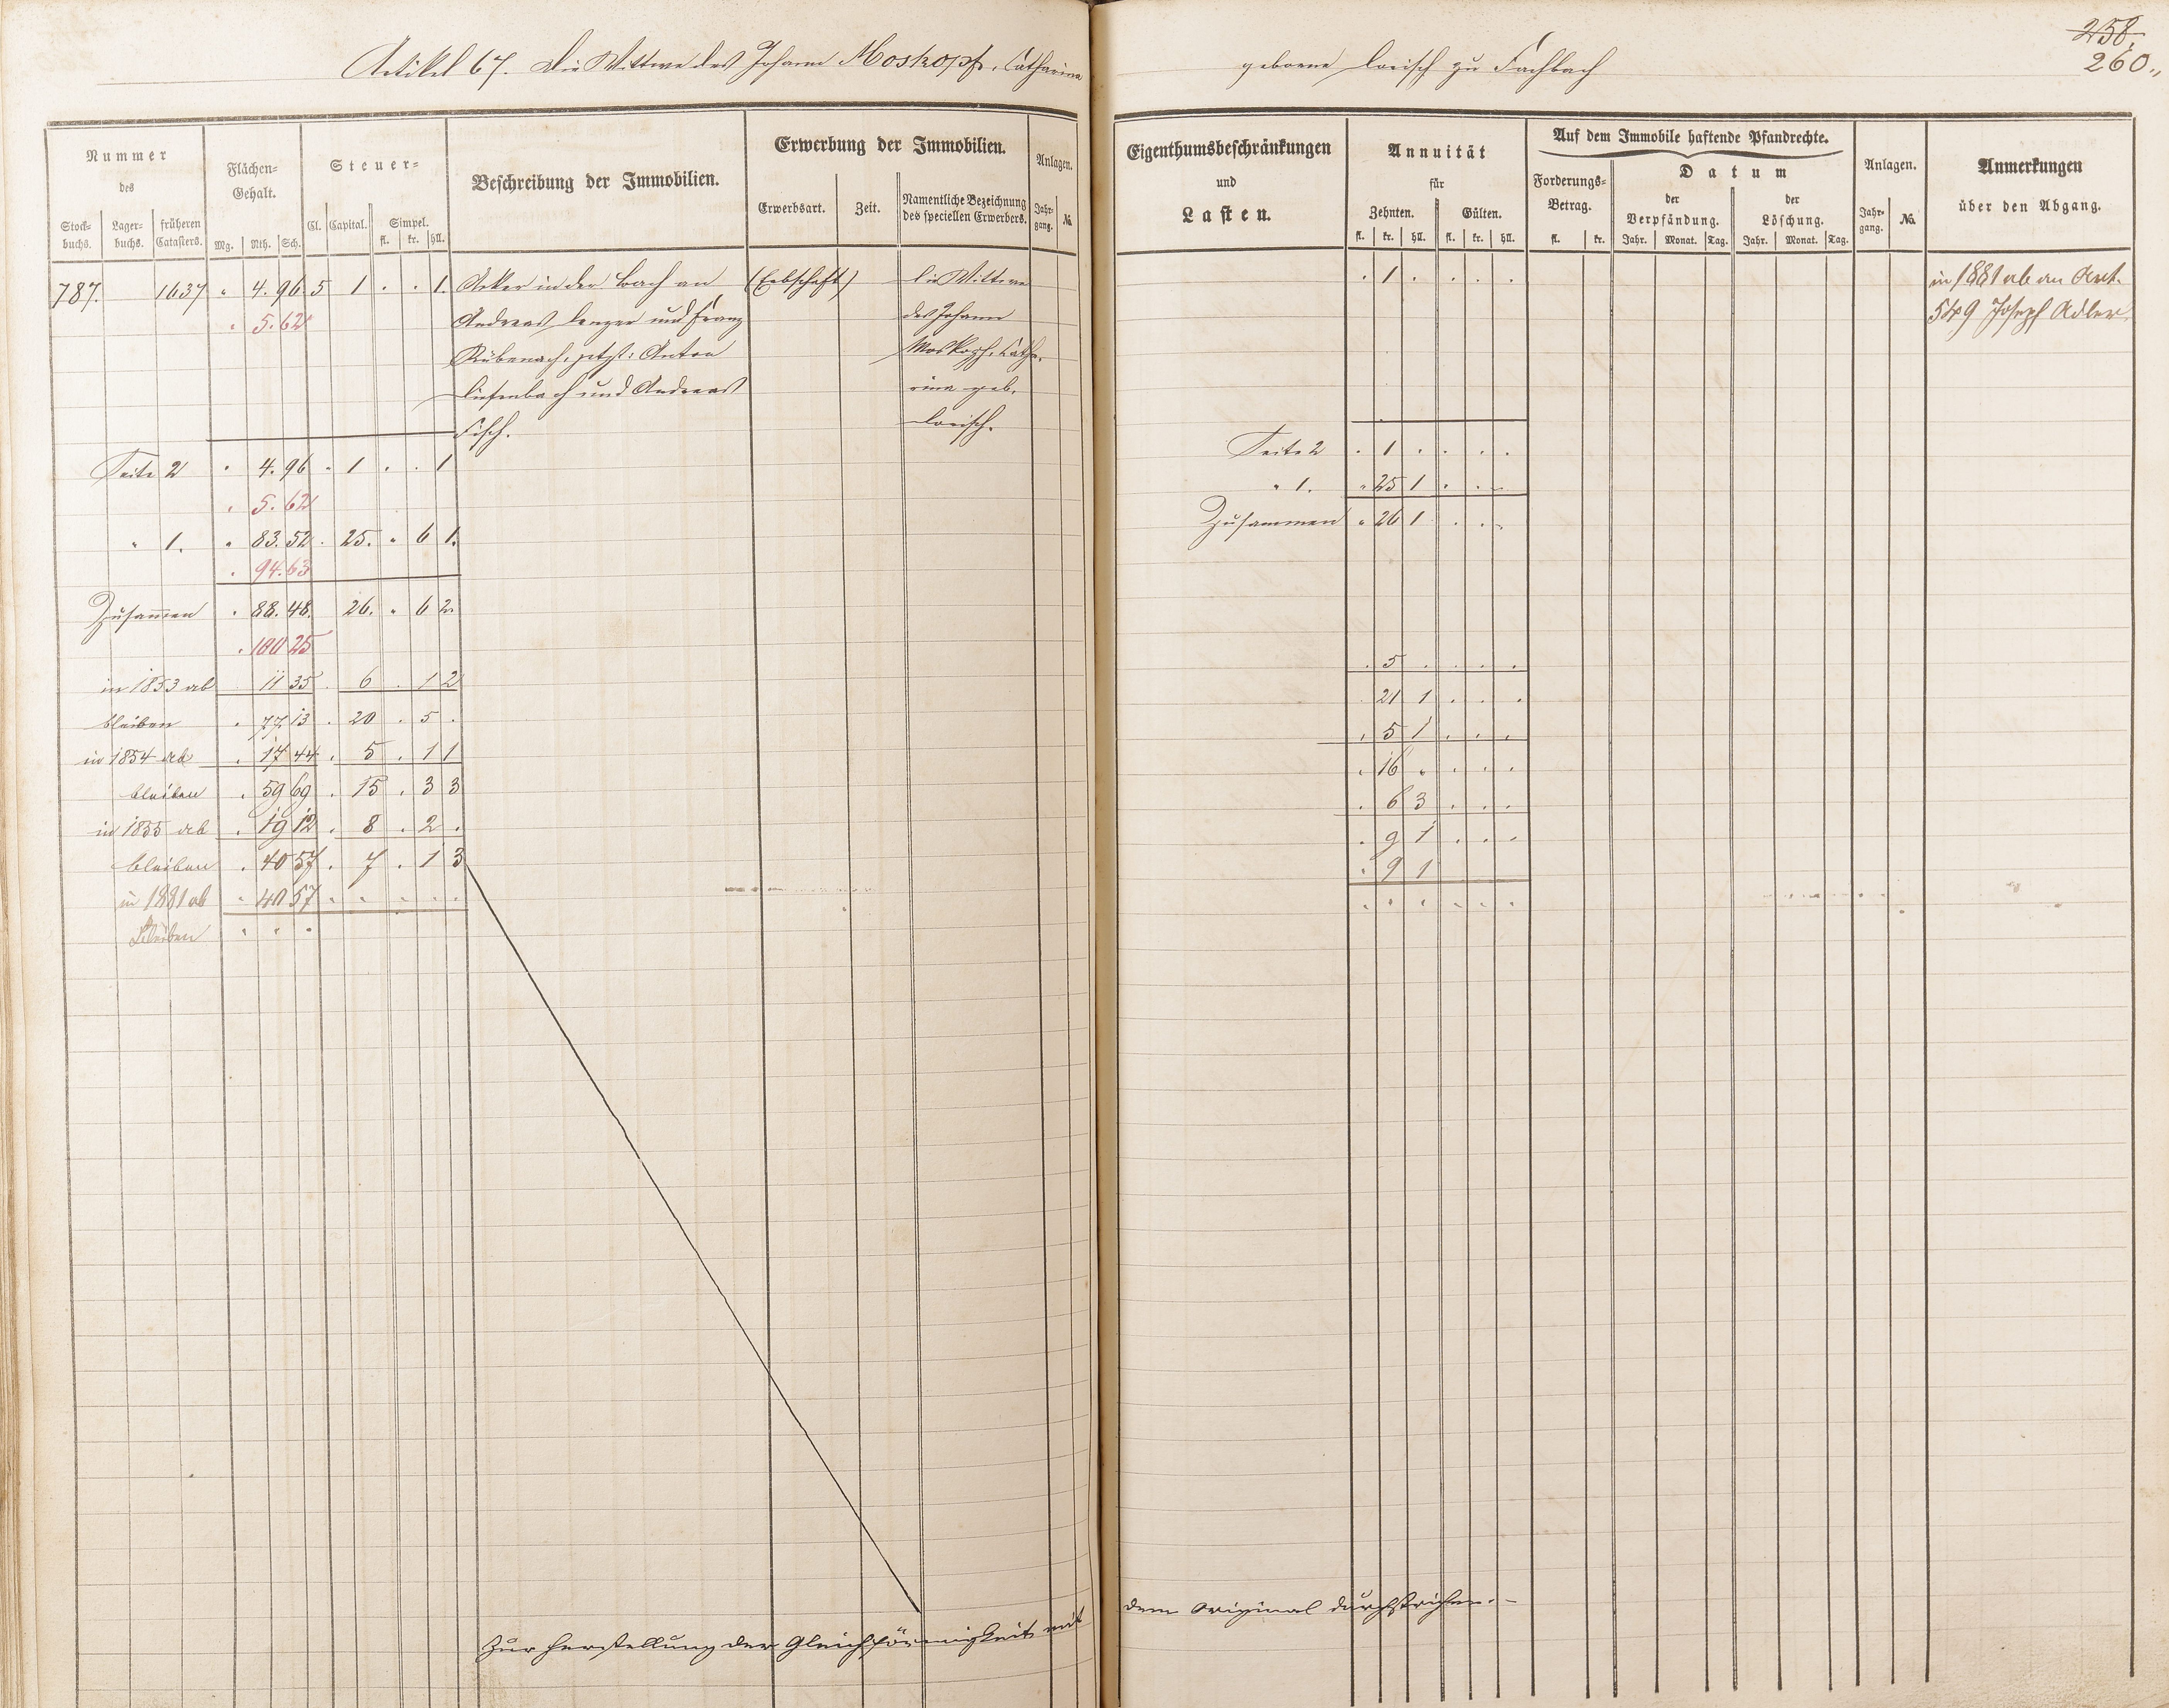 Artikel 67. Die Wittwe des Johann Moskopf, Catharina geborene Lorisch zu Fachbach
258.
260.
Nummer des
Stock-buchs. Lager-buchs. früheren Catasters.
Flächen-Gehalt.
Mg. Rth. Sch.
Steuer-
Cl. Capital. Simpel.
fl. kr. hll.
Beschreibung der Immobilien.
Erwerbung der Immobilien.
Erwerbsart. Zeit. Namentliche Bezeichnung des speciellen Erwerbers.
Anlagen.
Jahr-gang. №.
Eigenthumsbeschränkungen
und
Lasten.
Annuität
für
Zehnten. Gülten.
fl. kr. hll. fl. kr. hll.
Auf dem Immobile haftende Pfandrechte.
Forderungs-Betrag.
fl. kr.
Datum
der Verpfändung. der Löschung.
Jahr. Monat. Tag. Jahr. Monat. Tag.
Anlagen.
Jahr-gang. №.
Anmerkungen
über den Abgang.
787. 1637 " 4. 96 5 1 . . 1. Acker in der Bach an (Erbschaft) die Wittwe
" 5. 62 Andreas Lenzen und Franz des Johann
Rübenach, jetzt: Anton Moskopf, Catha-
Liefenbach und Andreas rina geb.
Fisch. Lorisch.
. 1 . . . .
in 1881 ab an Art.
549 Joseph Adler
Seite 2 " 4. 96 " 1 . . 1
" 5. 62
" 1. " 83. 52 . 25. " 6 1.
. 94. 63
Zusammen " 88. 48. 26. " 6 2.
. 100 25
in 1853 ab 11 35 . 6 . 1 2
bleiben " 77. 13 . 20 . 5 .
in 1854 ab . 17 44 . 5 . 1 1
bleiben . 59 69 . 15 . 3 3
in 1855 ab . 19 12 . 8 . 2 .
bleiben . 40 57 . 7 . 1 3
in 1881 ab " 40 57 " " . . .
Bleiben " " "
Seite 2 . 1 . . . .
" 1. " 25 1 . . .
Zusammen " 26 1 . . .
. 5 . . . .
. 21 1 . . .
. 5 1 . . .
. 16 " . . .
. 6 3 . . .
. 9 1 . . .
. 9 1
" " " " " "
Zur Herstellung der Gleichförmigkeit mit dem Original durchstrichen. –